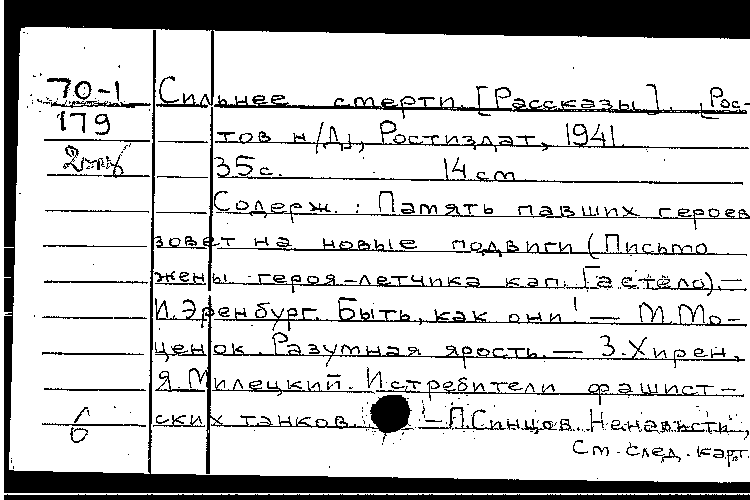 70-1 Сильнее смерти. [Рассказы]. [Рос-
179 тов н/Д], Ростиздат, 1941.
35с. 14 см
Содерж.: Память павших героев
зовет на новые подвиги (Письмо
жены героя-летчика кап. Гастело). —
И. Эренбург. Быть, как они! — М. Мо-
ценок. Разумная ярость. — З. Хирен,
Я. Милецкий. Истребители фашист-
ских танков. — П. Синцов. Ненависти,
См. след. карт.